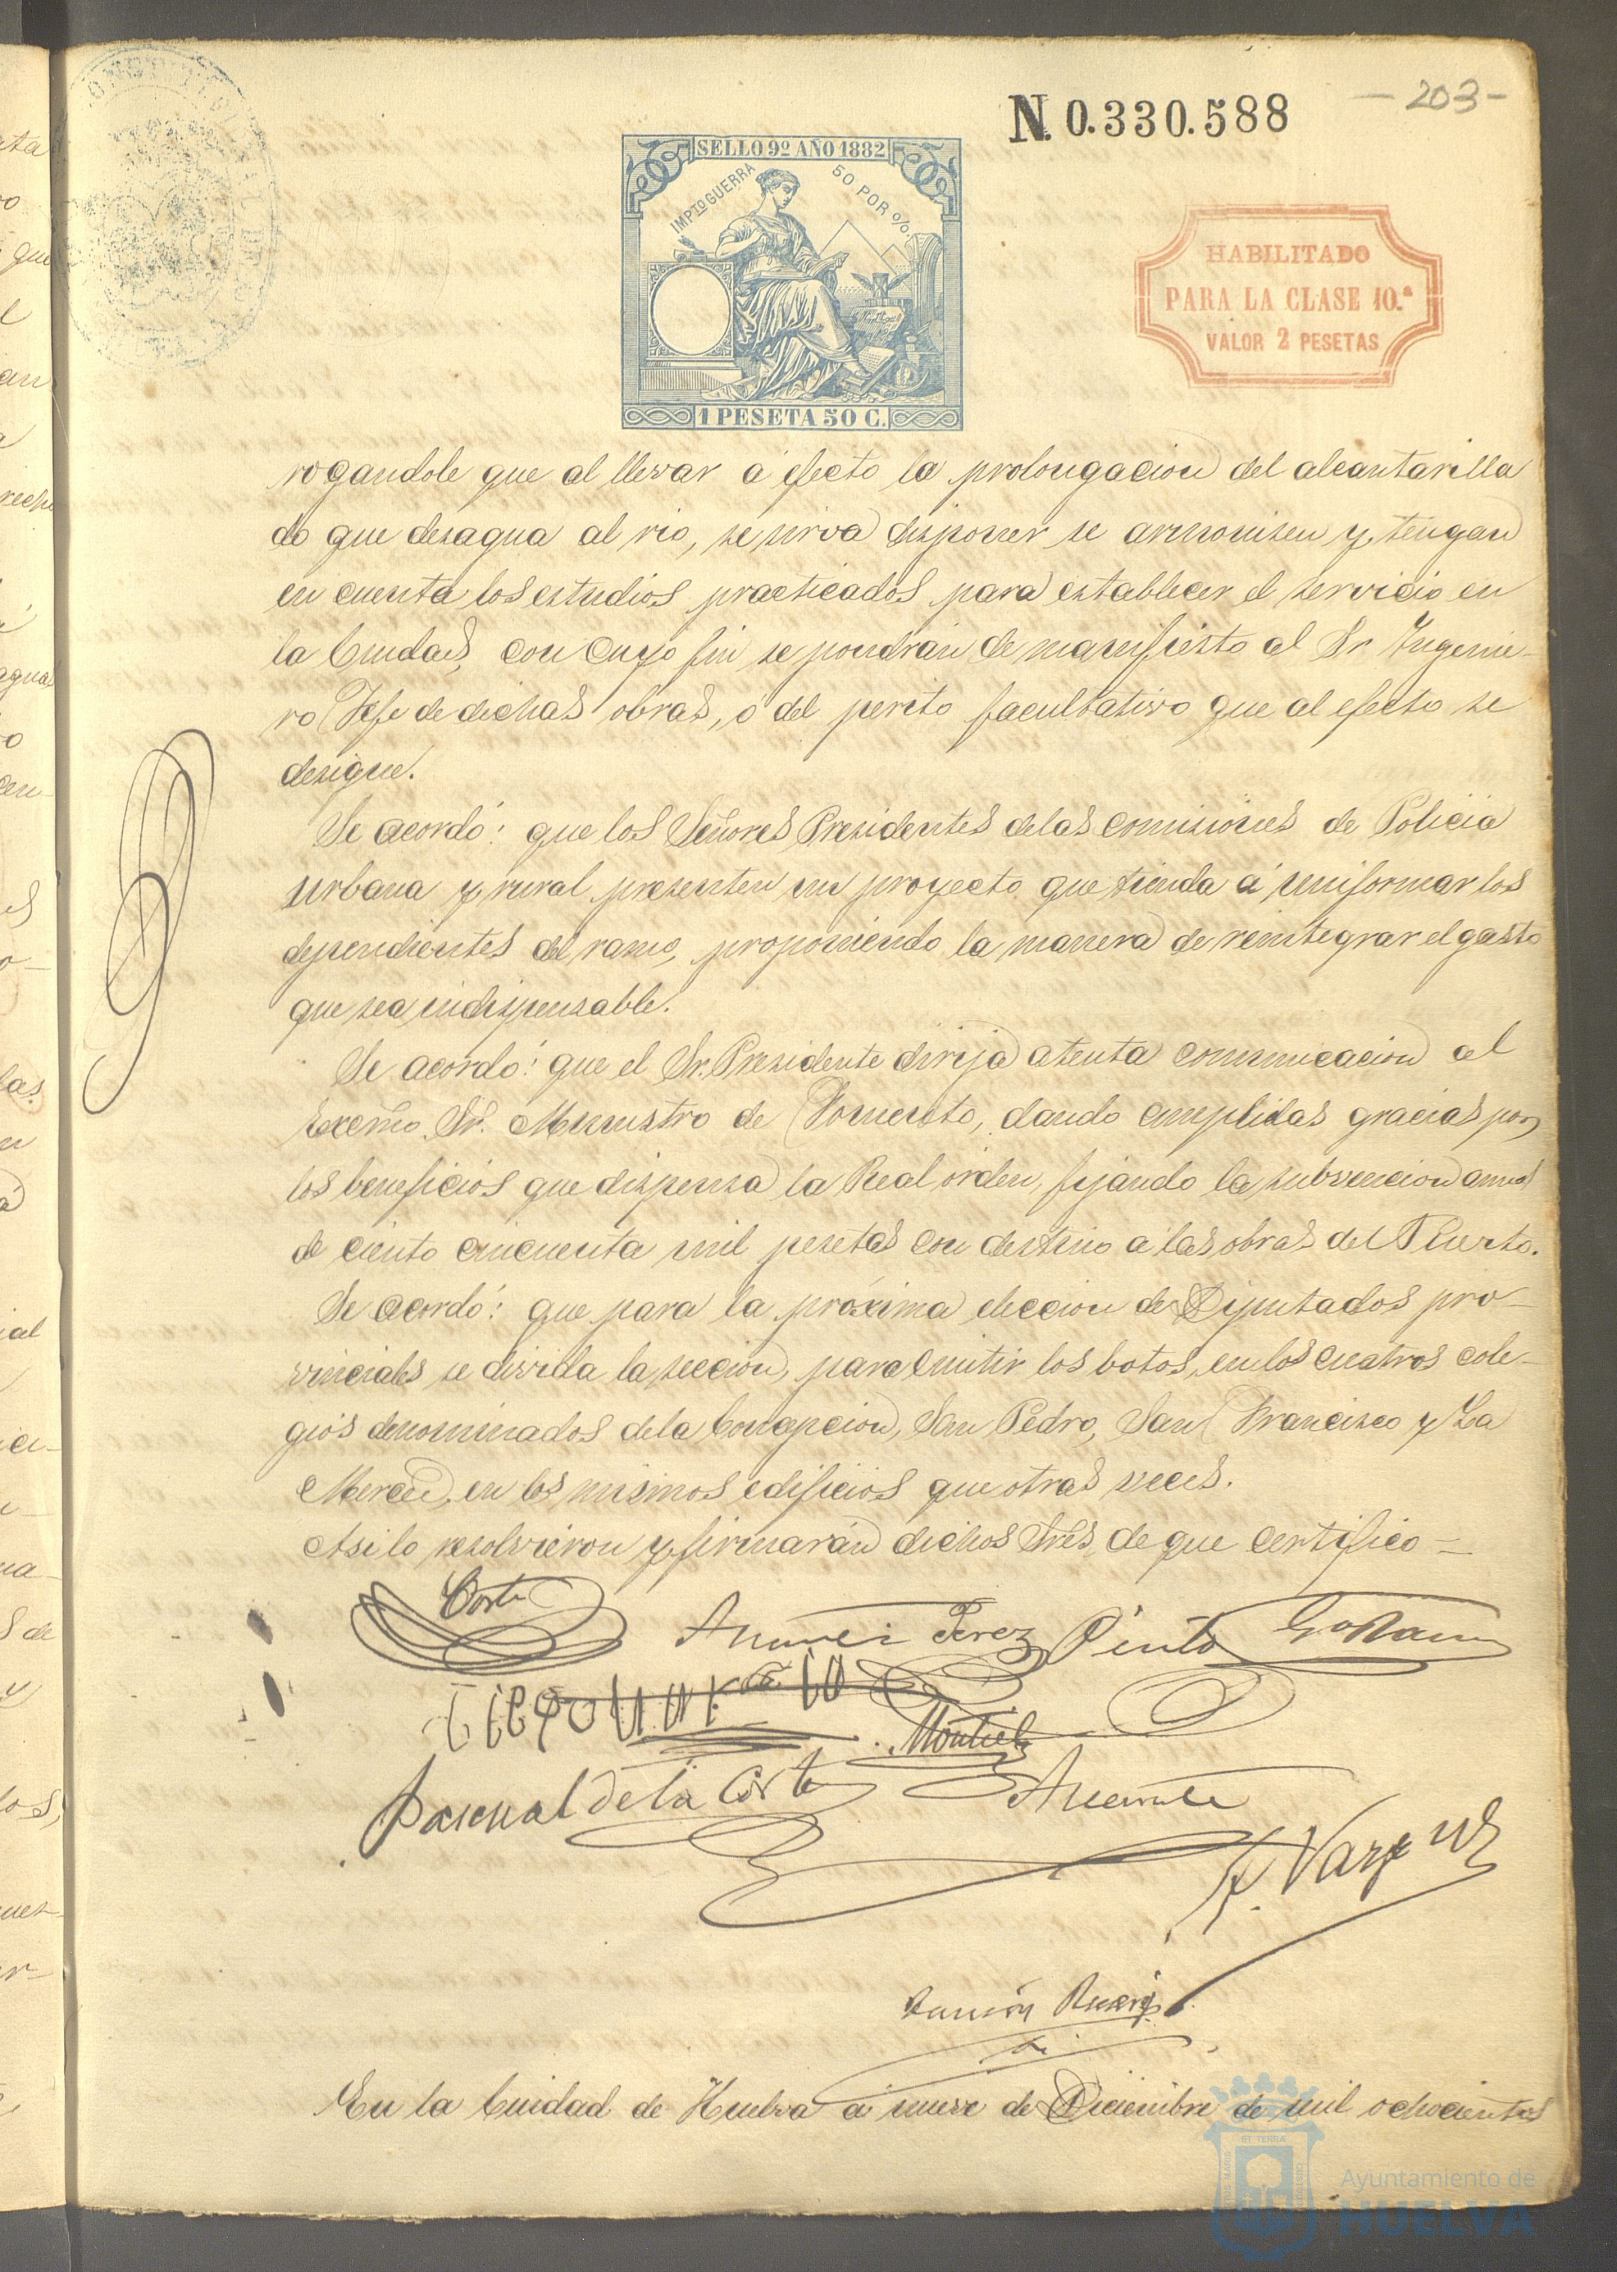 - 203 -
N. 0.330.588
SELLO 9º AÑO 1882
IMPTO GUERRA 50 POR %.
1 PESETA 50 C.
HABILITADO
PARA LA CLASE 10.ª
VALOR 2 PESETAS
rogandole que al llevar á efecto la prolongacion del alcantarilla
do que desagua al rio, se sirva disponer se armonisen y tengan
en cuenta los estudios practicados para establecer el servicio en
la Ciudad, con cuyo fin se pondrán de manifiesto al Sr Ingenie-
ro Jefe de dichas obras, ó del perito facultativo que al efecto se
designe.
Se acordó: que los Señores Presidentes de las comisiones de Policia
urbana y rural presenten un proyecto que tienda á uniformar los
dependientes del ramo, proponiendo la manera de reintegrar el gasto
que sea indispensable.
Se acordó: que el Sr. Presidente dirija atenta comunicacion al
Excmo. Sr. Ministro de Fomento, dando cumplidas gracias por
los beneficios que dispensa la Real orden, fijando la subvencion anual
de ciento cincuenta mil pesetas con destino á las obras del Puerto.
Se acordó: que para la próxima eleccion de Diputados pro-
vinciales se divida la seccion, para emitir los botos, en los cuatros cole-
gios denominados de la Concepcion, San Pedro, San Francisco y La
Merced, en los mismos edificios que otras veces.
Asi lo resolvieron y firmarán dichos Sres, de que certifico -
Corte
Perez Pinto
Montiel
Pascual de la Corte
F. Vazquez
Ramón
En la Ciudad de Huelva á nueve de Diciembre de mil ochocientos
Ayuntamiento de
HUELVA